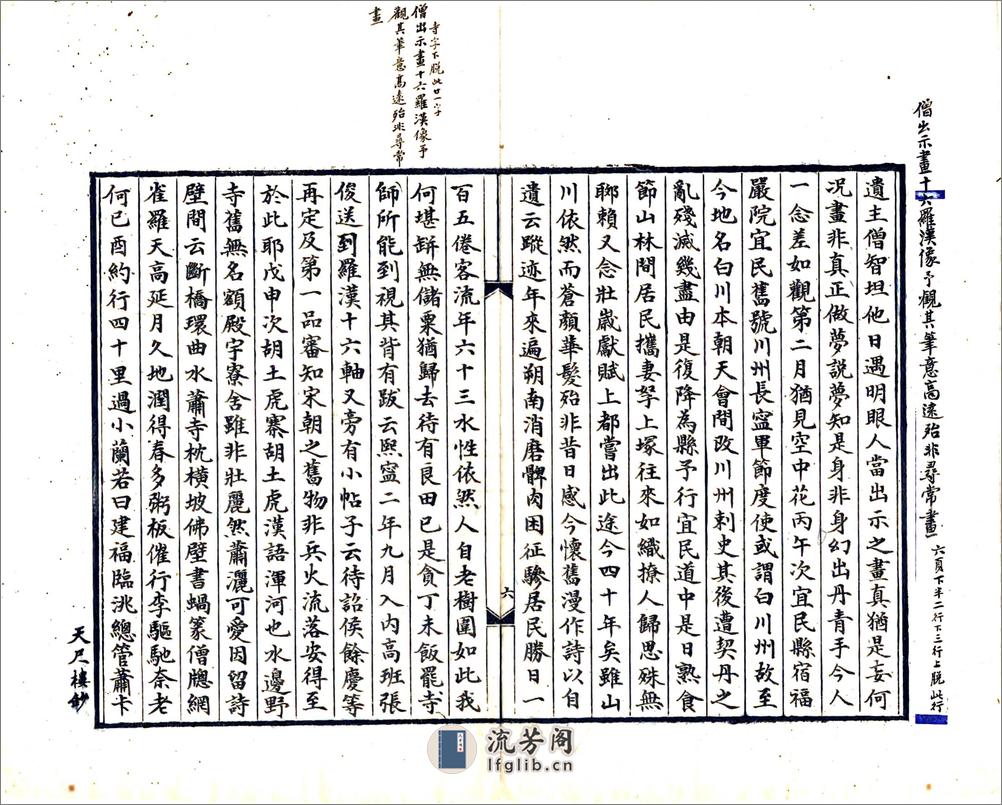 僧出示畫十六羅漢像予觀其筆意高遠殆非尋常畫 六頁下半二行下三行上脱此行
遺主僧智坦他日遇明眼人當出示之畫真猶是妄何
況畫非真正做夢說夢知是身非身幻出丹青手今人
一念差如觀第二月猶見空中花丙午次宜民縣宿福
嚴院宜民舊號川州長寧軍節度使或謂白川州故至
今地名白川本朝天會間改川州刺史其後遭契丹之
亂殘滅幾盡由是復降為縣予行宜民道中是日熟食
節山林間居民攜妻孥上塚往來如織撩人歸思殊無
聊賴又念壯歲獻賦上都嘗出此途今四十年矣雖山
川依然而蒼顏華髮殆非昔日感今懷舊漫作詩以自
遺云蹤迹年來遍朔南消磨髀肉困征驂居民勝日一
六
寺字下脱此廿一字
僧出示畫十六羅漢像予
觀其筆意高遠殆非尋常
畫
百五倦客流年六十三水性依然人自老樹圍如此我
何堪缾無儲粟猶歸去待有良田已是貪丁未飯罷寺
師所能到視其背有跋云熙寧二年九月入內高班張
俊送到羅漢十六軸又旁有小帖子云待詔侯餘慶等
再定及第一品審知宋朝之舊物非兵火流落安得至
於此耶戊申次胡土虎寨胡土虎漢語渾河也水邊野
寺舊無名額殿宇寮舍雖非壯麗然蕭灑可愛因留詩
壁間云斷橋環曲水蕭寺枕橫坡佛壁書蝸篆僧牕網
雀羅天高延月久地潤得春多粥板催行李驅馳奈老
何已酉約行四十里過小蘭若曰建福臨洮總管蕭卞
天尺樓鈔
流芳阁
lfglib.cn